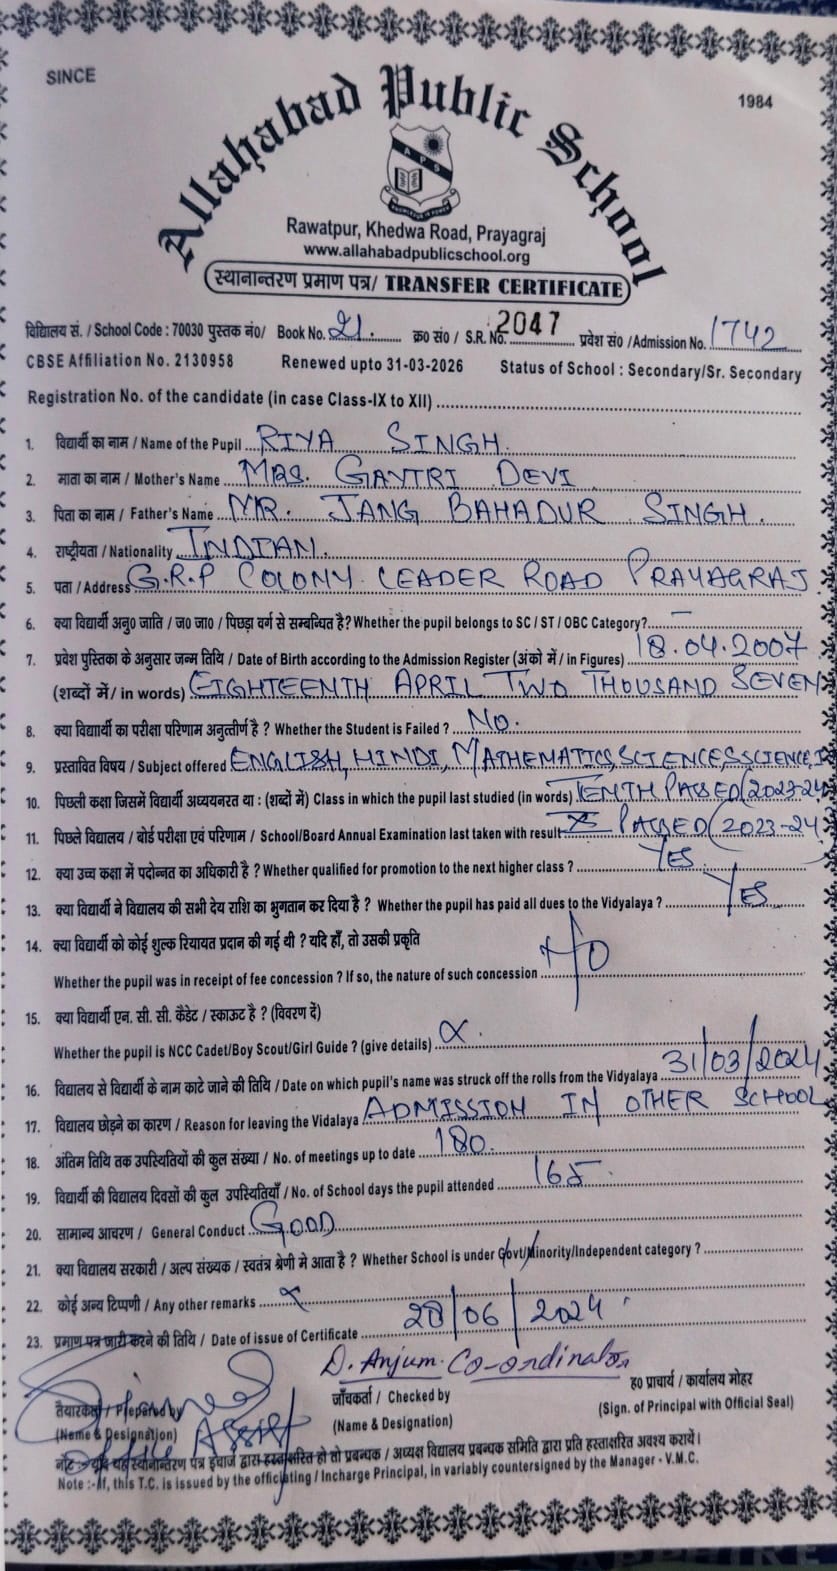 SINCE
1984
Allahabad Public School
APS
Rawatpur, Khedwa Road, Prayagraj
www.allahabadpublicschool.org
स्थानान्तरण प्रमाण पत्र/ TRANSFER CERTIFICATE
विद्यालय सं. / School Code : 70030 पुस्तक नं०/ Book No. 21. क्र० सं० / S.R. No. 2047 प्रवेश सं० /Admission No. 1742
CBSE Affiliation No. 2130958 Renewed upto 31-03-2026 Status of School : Secondary/Sr. Secondary
Registration No. of the candidate (in case Class-IX to XII)
1. विद्यार्थी का नाम / Name of the Pupil RIYA SINGH.
2. माता का नाम / Mother's Name MRS. GAYTRI DEVI
3. पिता का नाम / Father's Name MR. JANG BAHADUR SINGH.
4. राष्ट्रीयता / Nationality INDIAN.
5. पता / Address G.R.P COLONY LEADER ROAD PRAYAGRAJ
6. क्या विद्यार्थी अनु० जाति / ज० जा० / पिछड़ा वर्ग से सम्बन्धित है? Whether the pupil belongs to SC / ST / OBC Category? —
7. प्रवेश पुस्तिका के अनुसार जन्म तिथि / Date of Birth according to the Admission Register (अंको में / in Figures) 18.04.2007
(शब्दों में/ in words) EIGHTEENTH APRIL TWO THOUSAND SEVEN
8. क्या विद्यार्थी का परीक्षा परिणाम अनुत्तीर्ण है ? Whether the Student is Failed ? NO.
9. प्रस्तावित विषय / Subject offered ENGLISH, HINDI, MATHEMATICS, SCIENCE, S.SCIENCE,
10. पिछली कक्षा जिसमें विद्यार्थी अध्ययनरत था : (शब्दों में) Class in which the pupil last studied (in words) TENTH PASSED (2023-24
11. पिछले विद्यालय / बोर्ड परीक्षा एवं परिणाम / School/Board Annual Examination last taken with result X PASSED (2023-24)
12. क्या उच्च कक्षा में पदोन्नत का अधिकारी है ? Whether qualified for promotion to the next higher class ? YES
13. क्या विद्यार्थी ने विद्यालय की सभी देय राशि का भुगतान कर दिया है ? Whether the pupil has paid all dues to the Vidyalaya ? YES
14. क्या विद्यार्थी को कोई शुल्क रियायत प्रदान की गई थी ? यदि हाँ, तो उसकी प्रकृति
Whether the pupil was in receipt of fee concession ? If so, the nature of such concession NO
15. क्या विद्यार्थी एन. सी. सी. कैडेट / स्काऊट है ? (विवरण दें)
Whether the pupil is NCC Cadet/Boy Scout/Girl Guide ? (give details) x.
16. विद्यालय से विद्यार्थी के नाम काटे जाने की तिथि / Date on which pupil's name was struck off the rolls from the Vidyalaya 31/03/2024
17. विद्यालय छोड़ने का कारण / Reason for leaving the Vidalaya ADMISSION IN OTHER SCHOOL
18. अंतिम तिथि तक उपस्थितियों की कुल संख्या / No. of meetings up to date 180.
19. विद्यार्थी की विद्यालय दिवसों की कुल उपस्थितियाँ / No. of School days the pupil attended 165.
20. सामान्य आचरण / General Conduct GOOD
21. क्या विद्यालय सरकारी / अल्प संख्यक / स्वतंत्र श्रेणी मे आता है ? Whether School is under Govt/Minority/Independent category ?
22. कोई अन्य टिप्पणी / Any other remarks x
23. प्रमाण पत्र जारी करने की तिथि / Date of issue of Certificate 28/06/2024
D. Anjum. Co-ordinator
तैयारकर्ता / Prepared by जाँचकर्ता / Checked by ह० प्राचार्य / कार्यालय मोहर
(Name & Designation) (Name & Designation) (Sign. of Principal with Official Seal)
office Assist
नोट :- यदि यह स्थानान्तरण पत्र इंचार्ज द्वारा हस्ताक्षरित हो तो प्रबन्धक / अध्यक्ष विद्यालय प्रबन्धक समिति द्वारा प्रति हस्ताक्षरित अवश्य करायें।
Note :- If, this T.C. is issued by the officiating / Incharge Principal, in variably countersigned by the Manager - V.M.C.